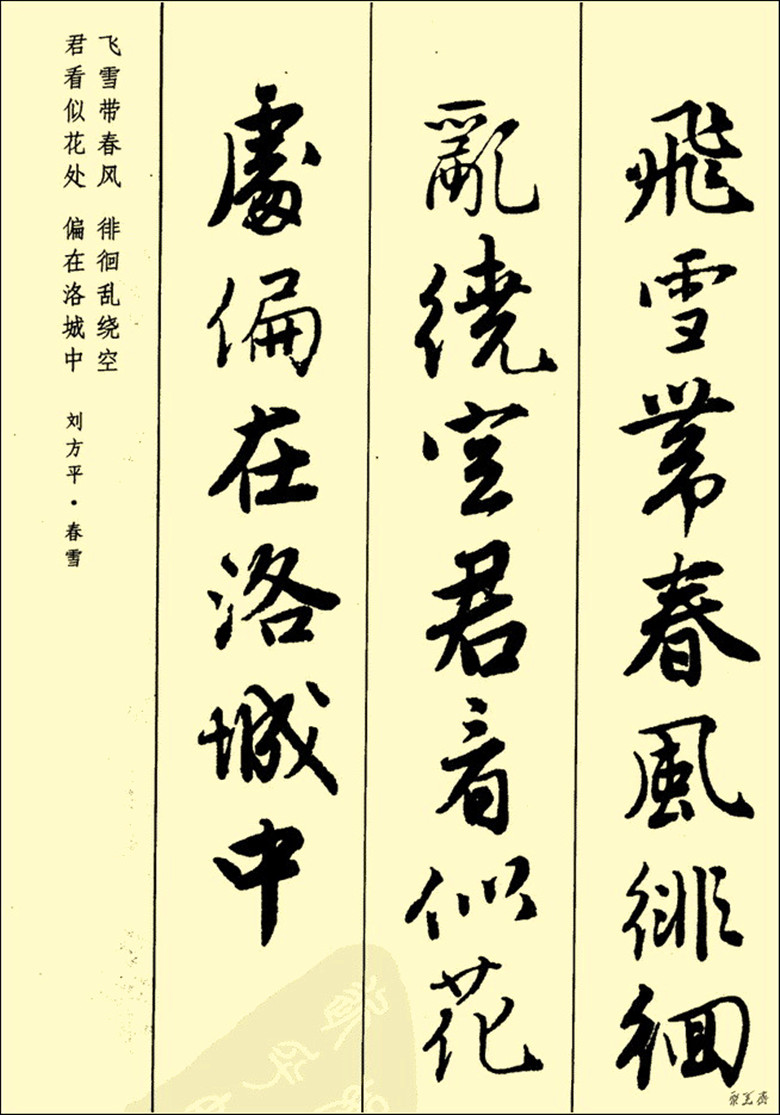 飛雪帶春風徘徊
亂繞空君看似花
處偏在洛城中
飞雪带春风 徘徊乱绕空
君看似花处 偏在洛城中 刘方平·春雪